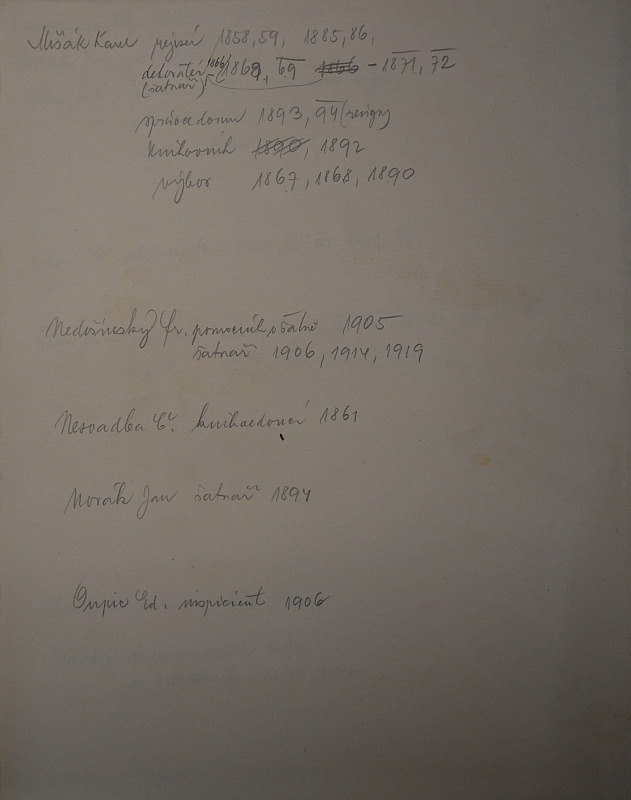 Mišák Karel režisér 1858,59, 1885,86,
dekoratér 1866 1868, 69 1866 - 1871, 72
(šatnář)
správce domu 1893, 94 (resign)
knihovník 1890, 1892
výbor 1867, 1868, 1890
Nedošinský Fr. pomocník v šatně 1905
šatnář 1906, 1914, 1919
Nesvadba Č. knihvedoucí 1861
Novák Jan šatnář 1894
Oupic Ed. inspicient 1906